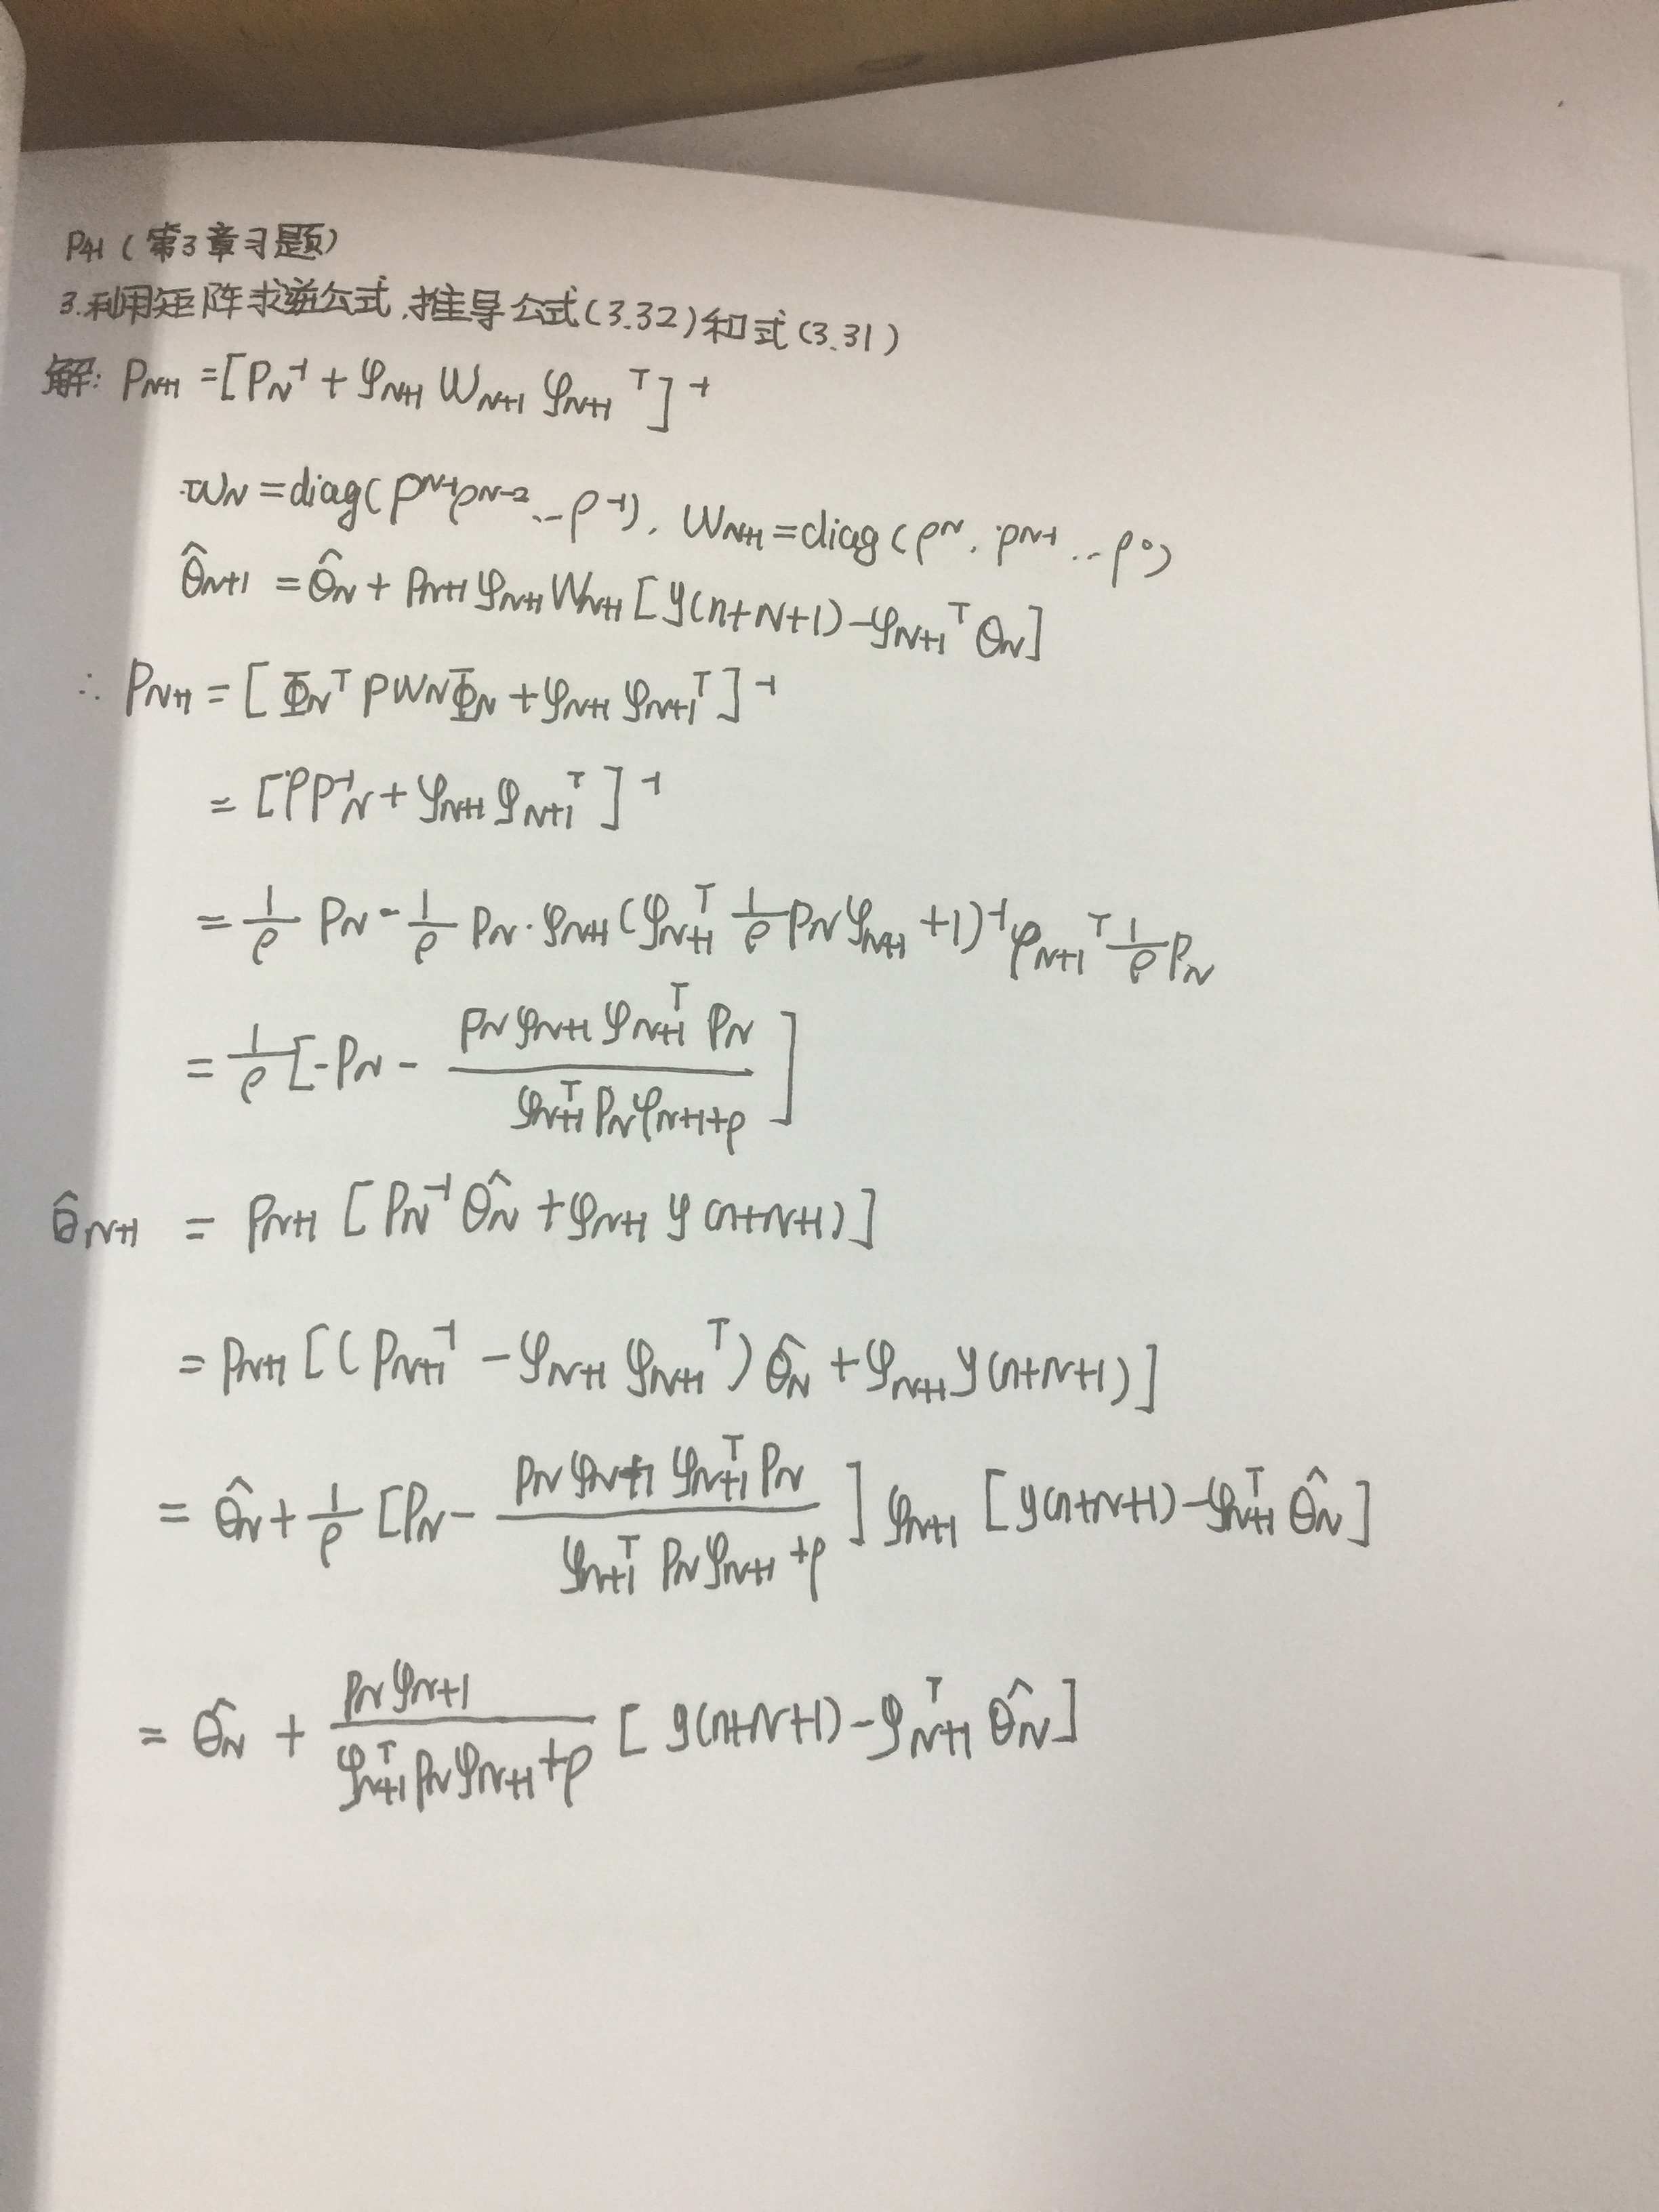 P41（第3章习题）
3.利用矩阵求逆公式,推导公式(3.32)和式(3.31)
解: P_{N+1} = [P_N^{-1} + φ_{N+1} W_{N+1} φ_{N+1}^T]^{-1}
W_N = diag(ρ^{N-1} ρ^{N-2} … ρ^{-1}), W_{N+1} = diag(ρ^N, ρ^{N-1} … ρ^0)
θ̂_{N+1} = θ̂_N + P_{N+1} φ_{N+1} W_{N+1} [y(n+N+1) - φ_{N+1}^T θ_N]
∴ P_{N+1} = [Φ_N^T ρ W_N Φ_N + φ_{N+1} φ_{N+1}^T]^{-1}
= [ρP_N^{-1} + φ_{N+1} φ_{N+1}^T]^{-1}
= \frac{1}{ρ} P_N - \frac{1}{ρ} P_N · φ_{N+1} (φ_{N+1}^T \frac{1}{ρ} P_N φ_{N+1} + 1)^{-1} φ_{N+1}^T \frac{1}{ρ} P_N
= \frac{1}{ρ} [-P_N - \frac{P_N φ_{N+1} φ_{N+1}^T P_N}{φ_{N+1}^T P_N φ_{N+1} + ρ}]
θ̂_{N+1} = P_{N+1} [P_N^{-1} θ̂_N + φ_{N+1} y(n+N+1)]
= P_{N+1} [(P_{N+1}^{-1} - φ_{N+1} φ_{N+1}^T) θ̂_N + φ_{N+1} y(n+N+1)]
= θ̂_N + \frac{1}{ρ} [P_N - \frac{P_N φ_{N+1} φ_{N+1}^T P_N}{φ_{N+1}^T P_N φ_{N+1} + ρ}] φ_{N+1} [y(n+N+1) - φ_{N+1}^T θ̂_N]
= θ̂_N + \frac{P_N φ_{N+1}}{φ_{N+1}^T P_N φ_{N+1} + ρ} [y(n+N+1) - φ_{N+1}^T θ̂_N]